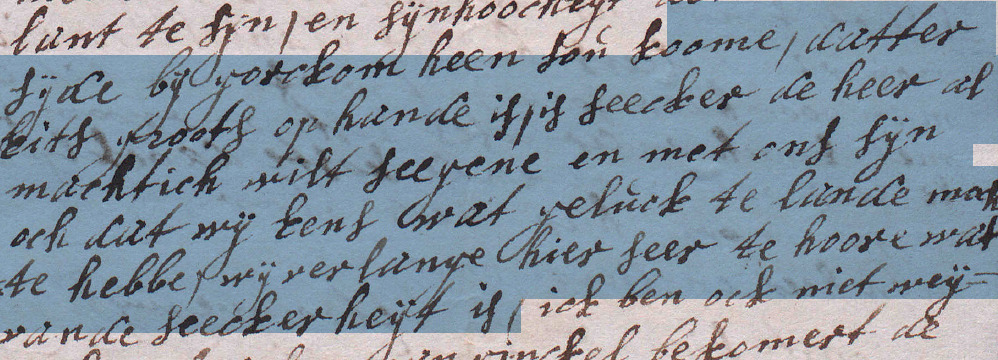 lant te sÿn / en sÿnhoocheÿt
sÿde bÿ gorckom heen soú koome / datter
eits groots op hande is / is seecker de heer al
machtich wilt seegene en met ons sÿn
och dat wÿ eens wat gelúck te lande moch
te hebbe / wÿ verlange hier seer te hoore wat
vande seeckerheÿt is / ick ben ock niet weÿ=
vinckel bekomert de